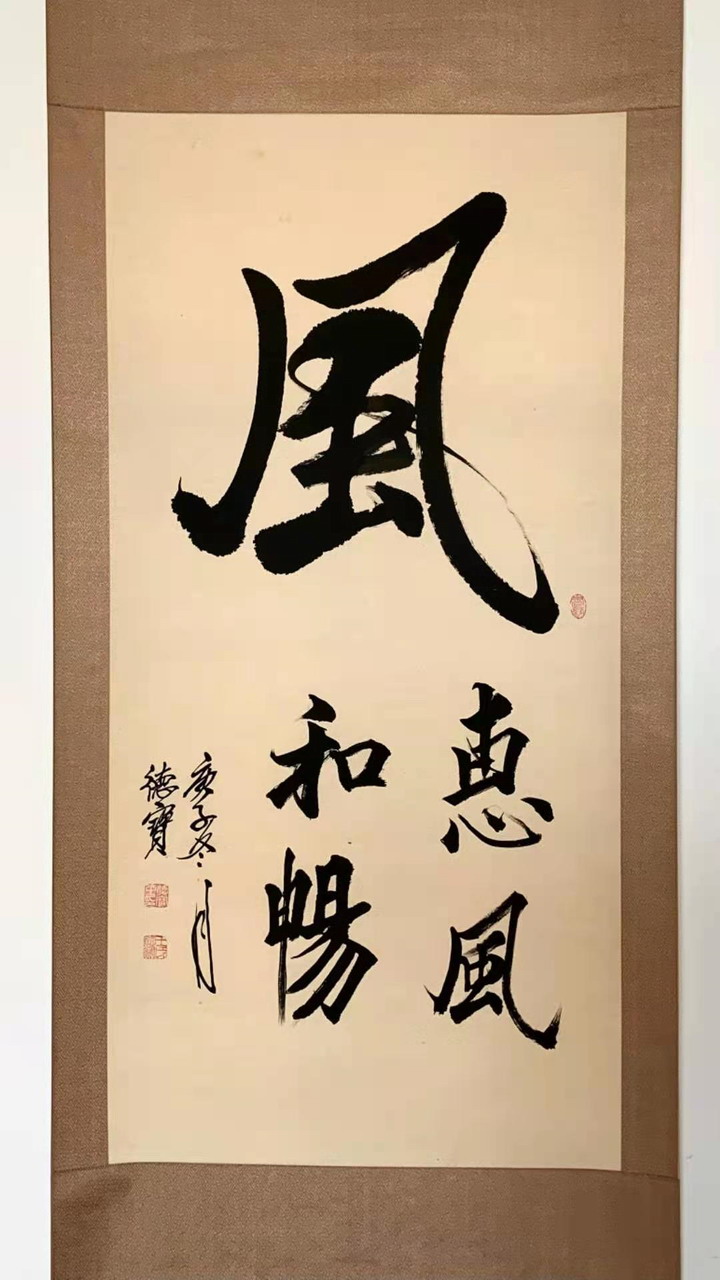 風
惠風
和暢
庚子冬月
德寶